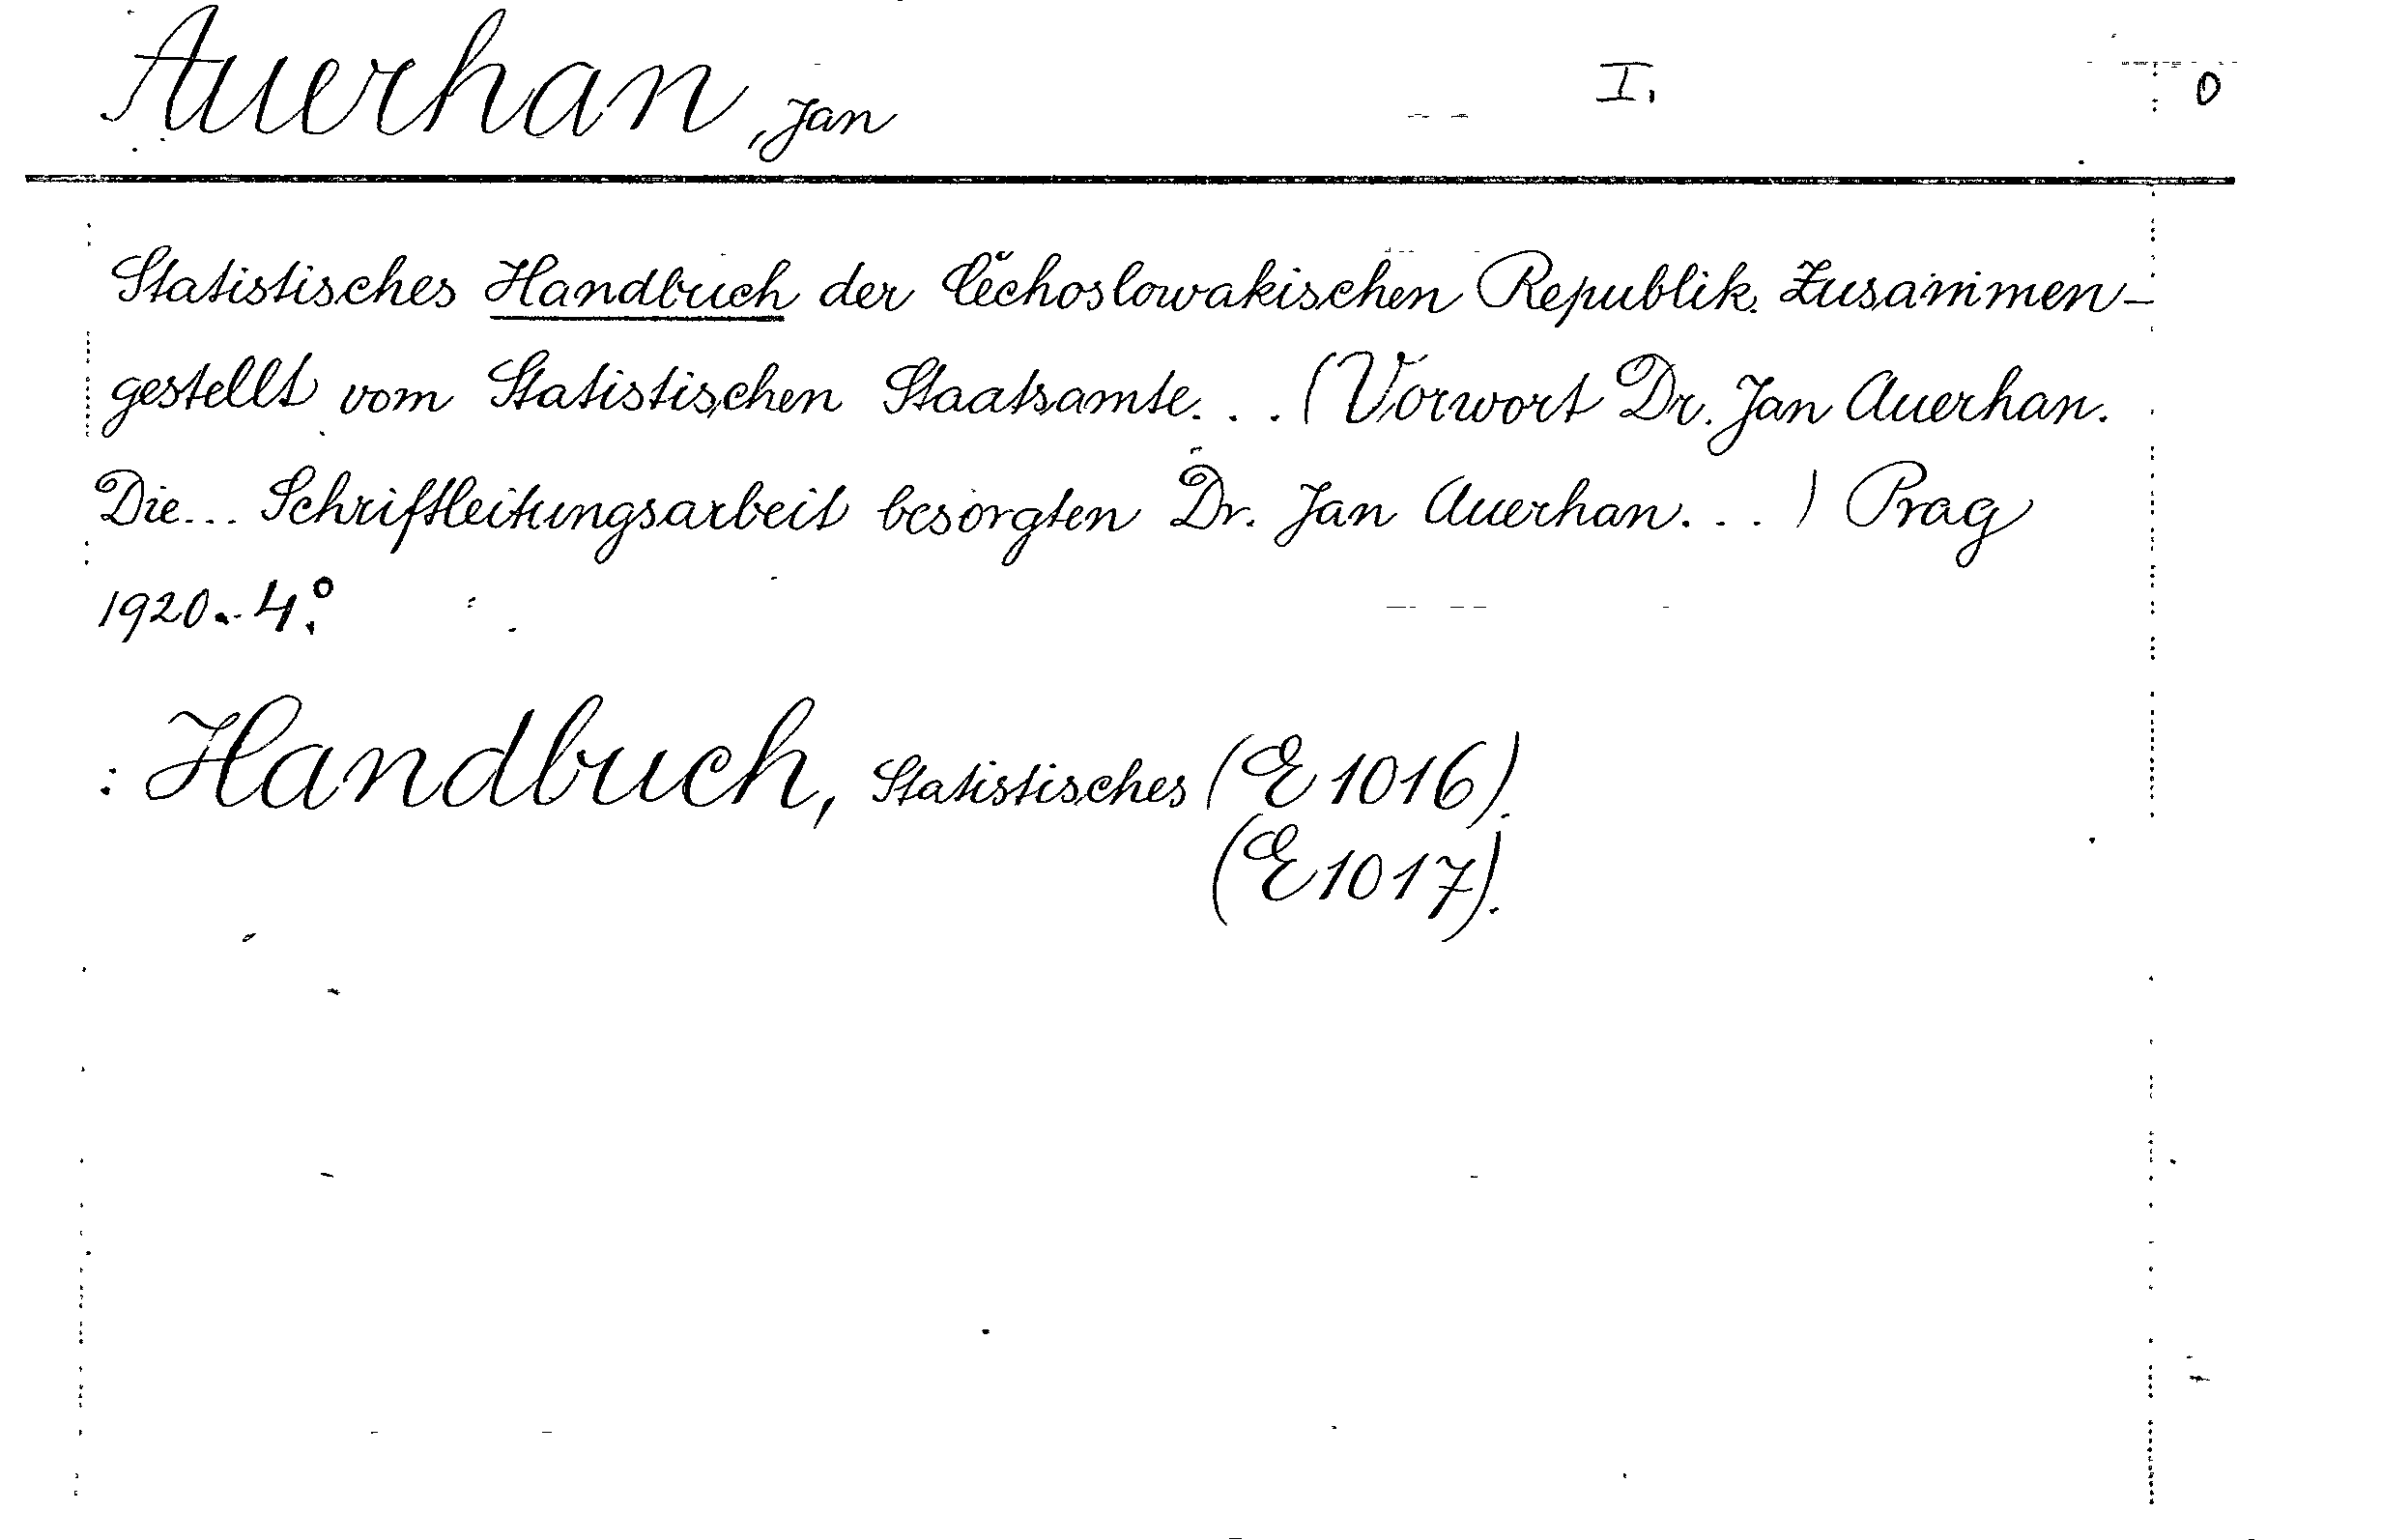 Auerhan, Jan I. 0
Statistisches Handbuch der Čechoslowakischen Republik. Zusammen-
gestellt vom Statistischen Staatsamte... (Vorwort Dr. Jan Auerhan.
Die... Schriftleitungsarbeit besorgten Dr. Jan Auerhan...) Prag
1920.- 4.°
Handbuch, Statistisches (E 1016).
(E 1017).